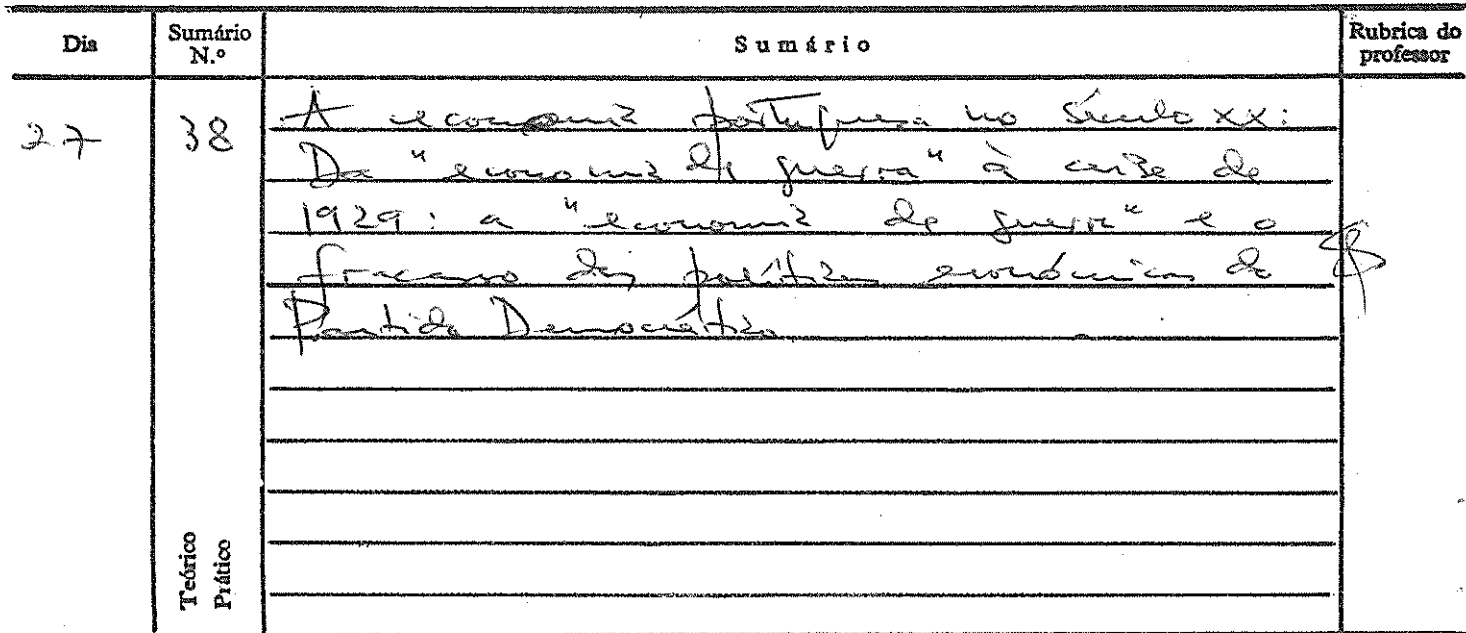 Dia Sumário N.º Sumário Rubrica do professor
27 38 A economia portuguesa no século XX:
Da "economia de guerra" à crise de
1929: a "economia de guerra" e o
fracasso das políticas económicas do
Partido Democrático
Teórico
Prático